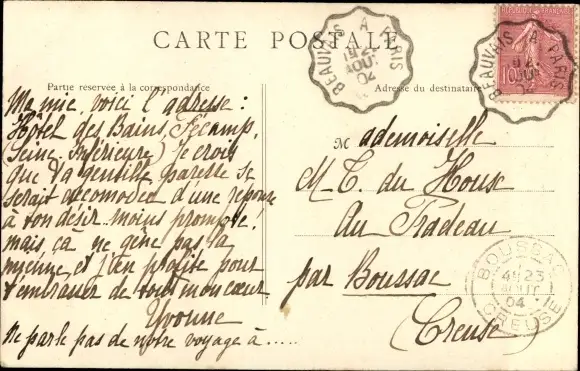 CARTE POSTALE
Partie reservée à la correspondance
Adresse du destinataire
Ma mie, voici l'adresse :
Hôtel des Bains, Fécamp,
(Seine Inférieure) Je crois
que ta gentille paresse se
serait accomodée d'une réponse
à ton désir moins prompte !
mais ça ne gêne pas la
mienne et j'en profite pour
t'embrasser de tout mon cœur.
Yvonne
ne parle pas de notre voyage à .....
Mademoiselle
M. T. du Houx
Au Pradeau
par Boussac
(Creuse)
BEAUVAIS A PARIS
AOUT
04
BEAUVAIS A PARIS
04
10
BOUSSAC
4E 23
AOUT
04
CREUSE